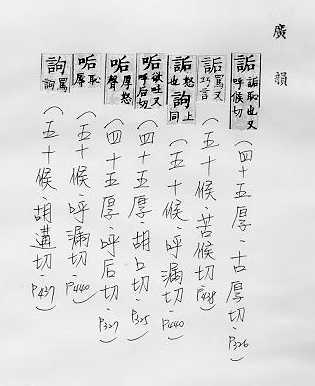 廣韻
詬 詬恥也又呼候切 (四十五厚·古厚切·P326)
詬 罵又巧言 (五十候·苦候切·P438)
詬 怒也 詢 上同 (五十候·呼漏切·P440)
㖃 欲吐又呼后切 (四十五厚·胡口切·P325)
㖃 厚怒聲 (四十五厚·呼后切·P327)
㖃 恥辱 (五十候·呼漏切·P440)
詢 罵詢 (五十候·胡遘切·P437)